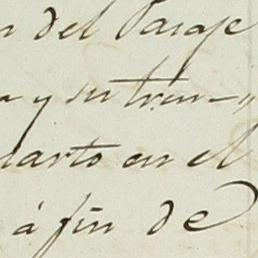 del Parage
y su trein-„
uarto en el
á fin de